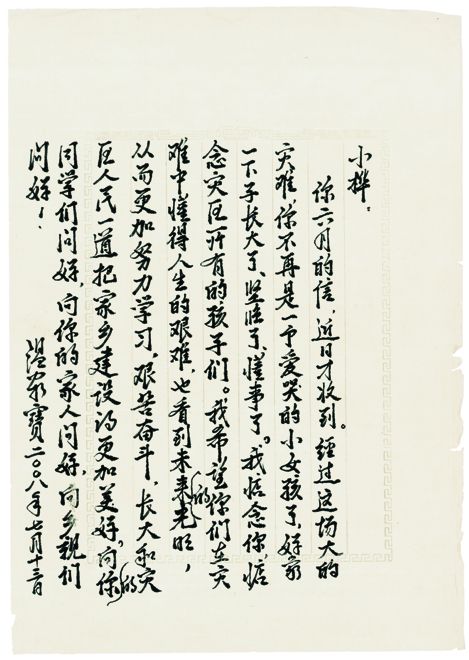 小桦:
你六月的信,近日才收到。经过这场大的
灾难,你不再是一个爱哭的小女孩了,好象
一下子长大了、坚强了、懂事了。我惦念你,惦
念灾区所有的孩子们。我希望你们在灾
难中懂得人生的艰难,也看到未来的光明,
从而更加努力学习,艰苦奋斗,长大和灾
区人民一道把家乡建设得更加美好。向你的
同学们问好,向你的家人问好,向乡亲们
问好!
温家寶 二〇〇八年七月十三日